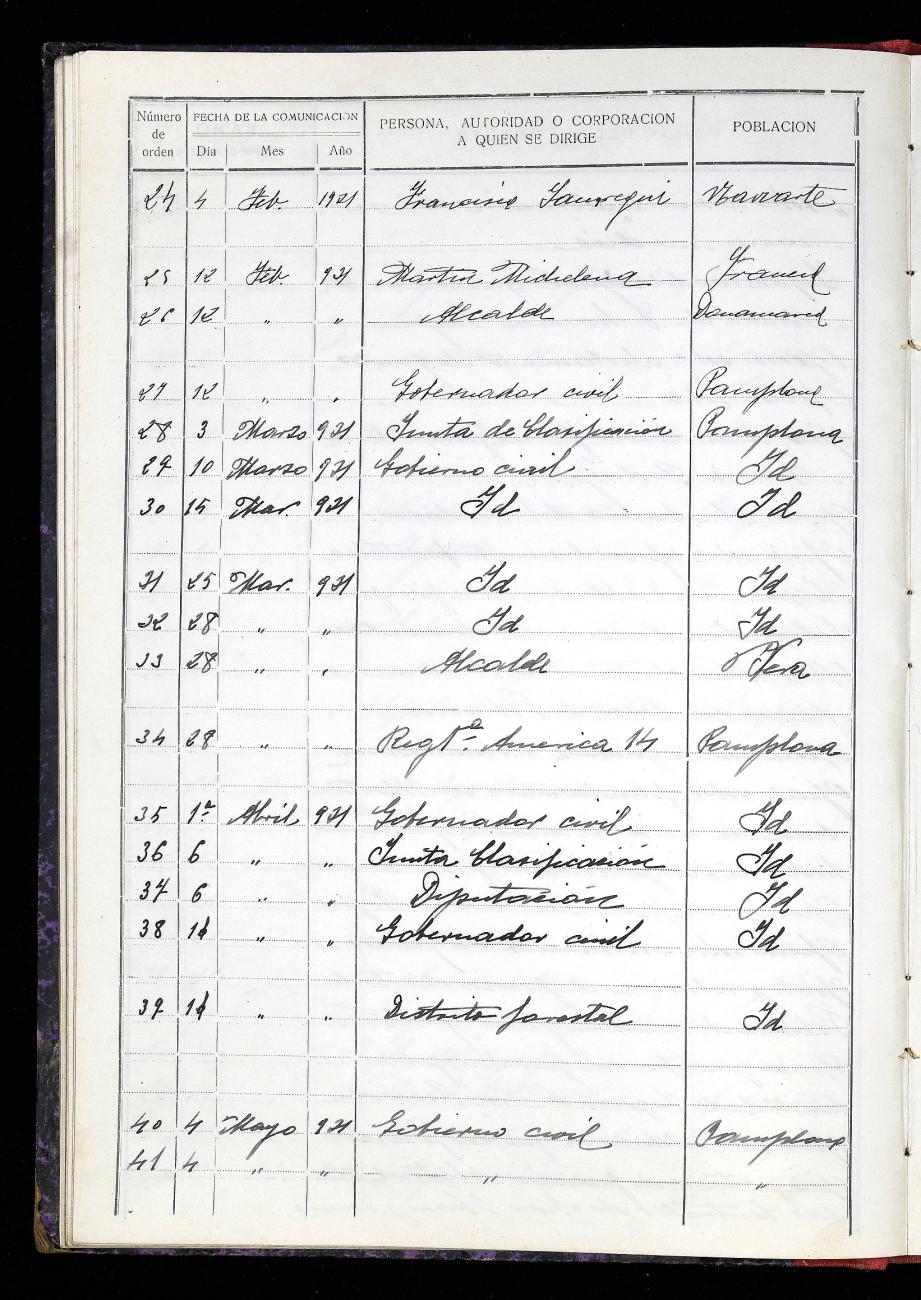 Número de orden | FECHA DE LA COMUNICACION | PERSONA, AUTORIDAD O CORPORACION A QUIEN SE DIRIGE | POBLACION
Día | Mes | Año
24 4 Feb. 1931 Francisco Jauregui Narvarte
25 12 Feb. 931 Martin Michelena Francia
26 12 " " Alcalde Donamaria
27 12 " " Gobernador civil Pamplona
28 3 Marzo 931 Junta de Clasificación Pamplona
29 10 Marzo 931 Gobierno civil Id
30 15 Mar 931 Id Id
31 25 Mar. 931 Id Id
32 28 " " Id Id
33 28 " " Alcalde Vera
34 28 " " America 14 Pamplona
35 1º Abril 931 Gobernador civil Id
36 6 " " Junta Clasificación Id
37 6 " " Diputación Id
38 " " Gobernador civil Id
39 " " Distrito forestal Id
40 4 Mayo 931 Gobierno civil Pamplona
41 4 " " " "